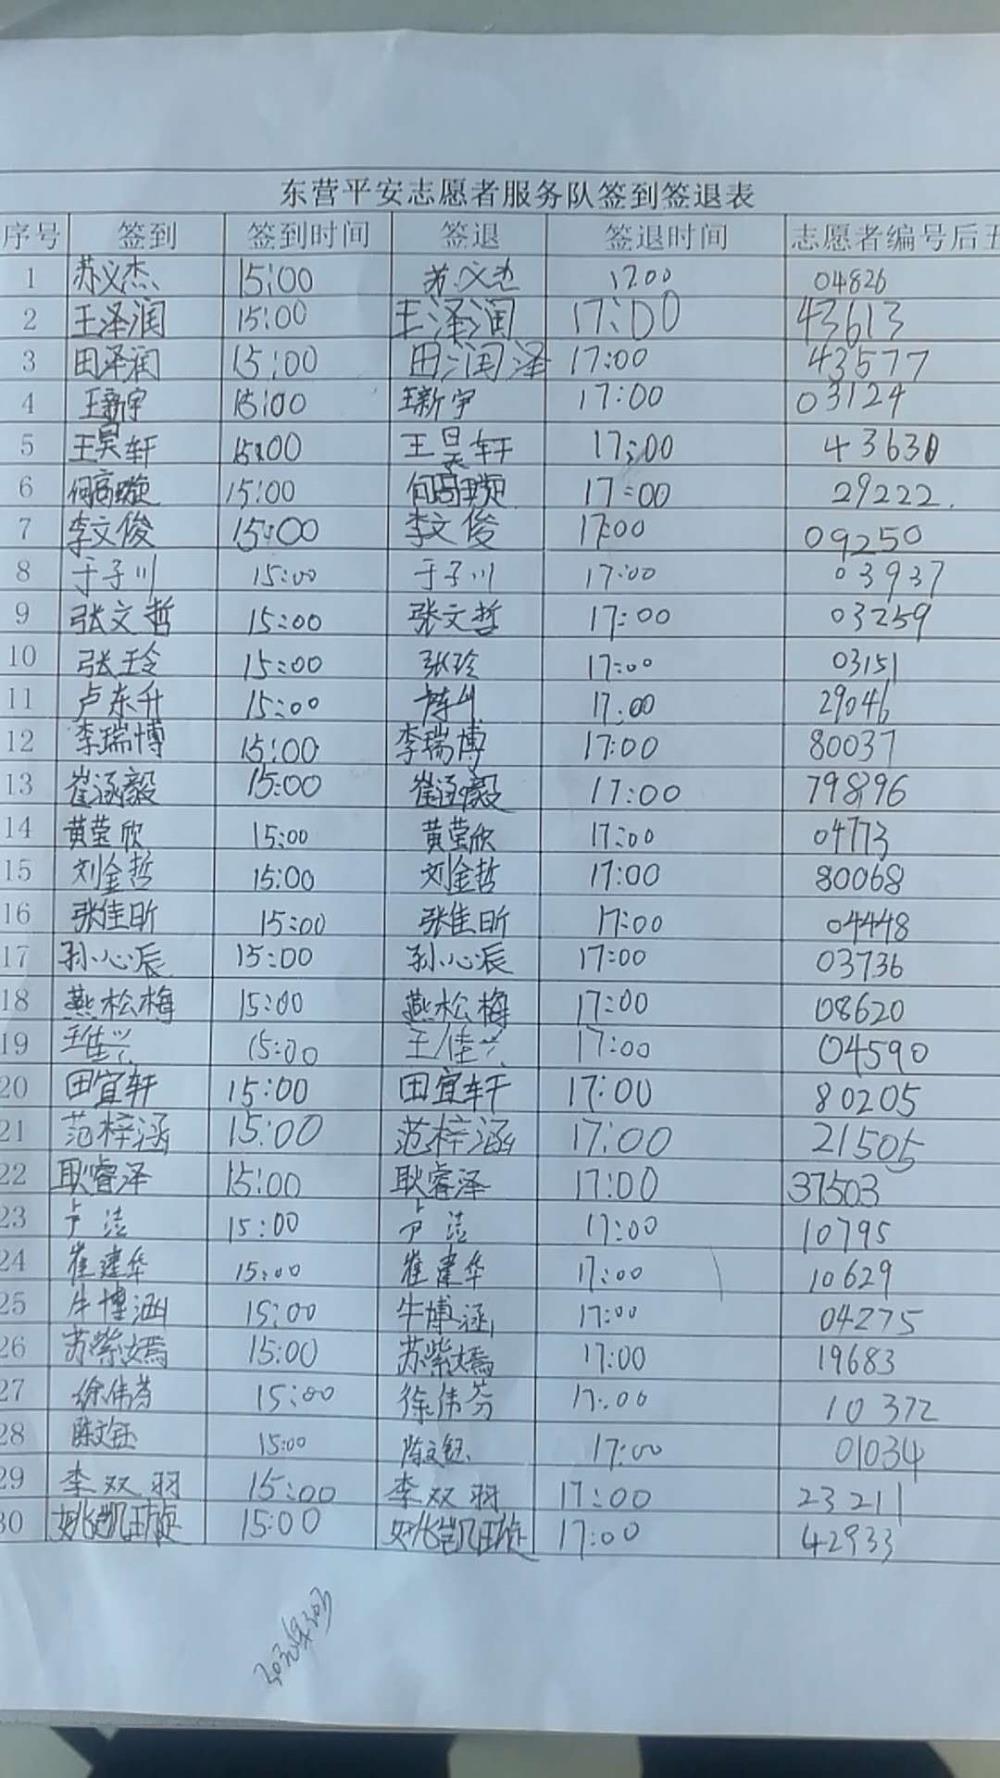 东营平安志愿者服务队签到签退表
序号 签到 签到时间 签退 签退时间 志愿者编号后五
1 苏义杰 15:00 苏义杰 17:00 04826
2 王泽润 15:00 王泽润 17:00 43613
3 田泽润 15:00 田润泽 17:00 43577
4 王新宇 15:00 王新宇 17:00 03124
5 王昊轩 15:00 王昊轩 17:00 43630
6 何高璇 15:00 何高璇 17:00 29222.
7 李文俊 15:00 李文俊 17:00 09250
8 于子川 15:00 于子川 17:00 03937
9 张文哲 15:00 张文哲 17:00 03259
10 张玲 15:00 张玲 17:00 03151
11 卢东升 15:00 17:00 29046
12 李瑞博 15:00 李瑞博 17:00 80037
13 崔涵毅 15:00 崔涵毅 17:00 79896
14 黄莹欣 15:00 黄莹欣 17:00 04773
15 刘金哲 15:00 刘金哲 17:00 80068
16 张佳昕 15:00 张佳昕 17:00 04448
17 孙心辰 15:00 孙心辰 17:00 03736
18 燕松梅 15:00 燕松梅 17:00 08620
19 王佳兴 15:00 王佳兴 17:00 04590
20 田宜轩 15:00 田宜轩 17:00 80205
21 范梓涵 15:00 范梓涵 17:00 21505
22 耿睿泽 15:00 耿睿泽 17:00 37503
23 卢洁 15:00 卢洁 17:00 10795
24 崔建华 15:00 崔建华 17:00 10629
25 牛博涵 15:00 牛博涵 17:00 04275
26 苏紫嫣 15:00 苏紫嫣 17:00 19683
27 徐伟芬 15:00 徐伟芬 17:00 10372
28 陈文钰 15:00 陈文钰 17:00 01034
29 李双羽 15:00 李双羽 17:00 23211
30 姚凯璇 15:00 姚凯璇 17:00 42933